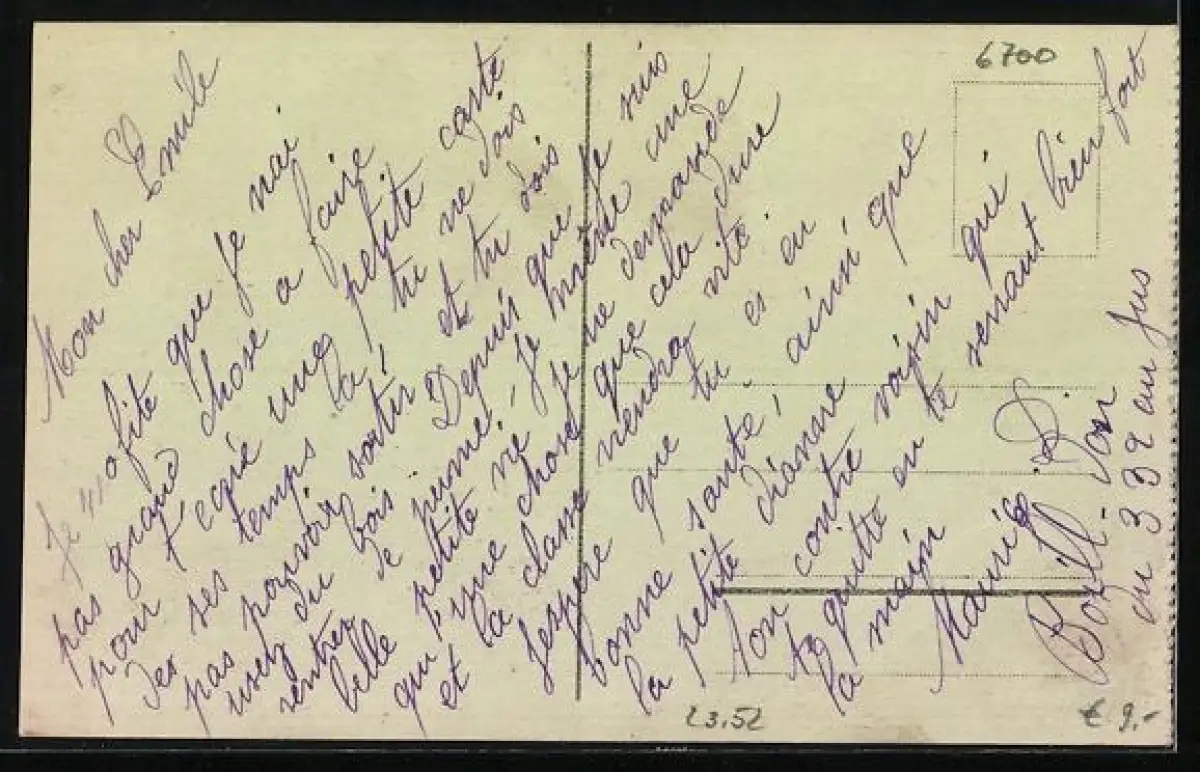 6700
Mon cher Emile
Je profite que je n'ai
pas grand chose a faire
pour t'ecrie une petite carte
des ses temps la, tu ne dois
pas pouvoir sortir et tu dois
usez du bois. Depuis que je suis
rentrez de perme, je mène une
belle petite vie je ne demande
qu'une chose que cela dure
et la classe viendra vite.
J'espere que tu es en
bonne santé, ainsi que
la petite Dianne
Ton contre voisin qui
te quitte en te serrant bien fort
la main
Maurice D.
Bozill-Son
du 339 au Jus
23.52
€ 9.-